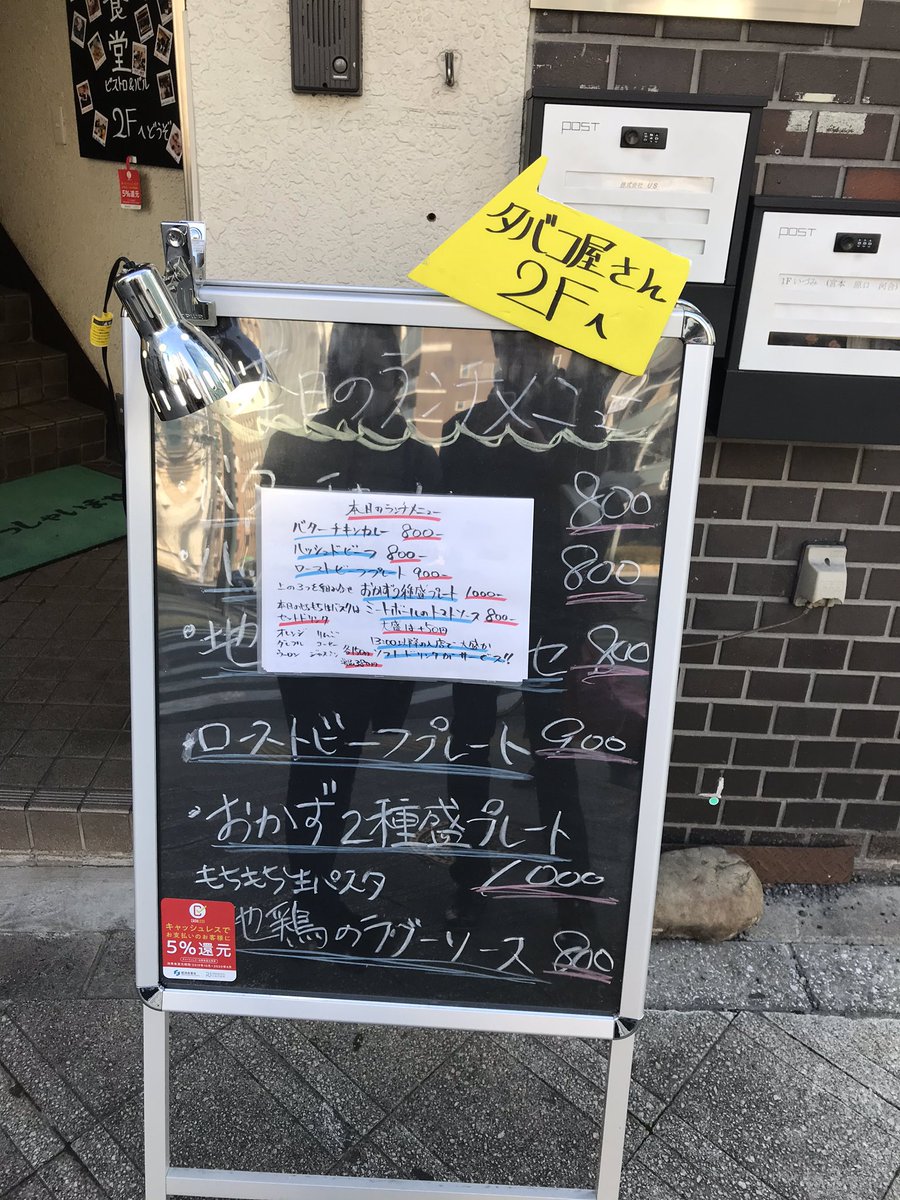 食堂
ビストロ&バル
2Fへどうぞ
5%還元
POST
株式会社 US
POST
タバコ屋さん
2Fへ
本日のランチメニュー
800
800
地
セ 800
本日のランチメニュー
バターチキンカレー 800-
ハッシュドビーフ 800-
ローストビーフプレート 900-
上の3つを組み合せ おかず2種盛プレート 1000-
本日のもちもち生パスタは ミートボールのトマトソース 800-
セットドリンク 大盛は+50円
オレンジ りんご 13:00以降の入店で 大盛か
グレフル コーヒー
ウーロン ジャスミン 各150円 ソフトドリンクがサービス!!
ローストビーフプレート 900
・おかず2種盛プレート
1000
もちもち生パスタ
地鶏のラグーソース 800
キャッシュレスで
お支払いのお客様に
5%還元